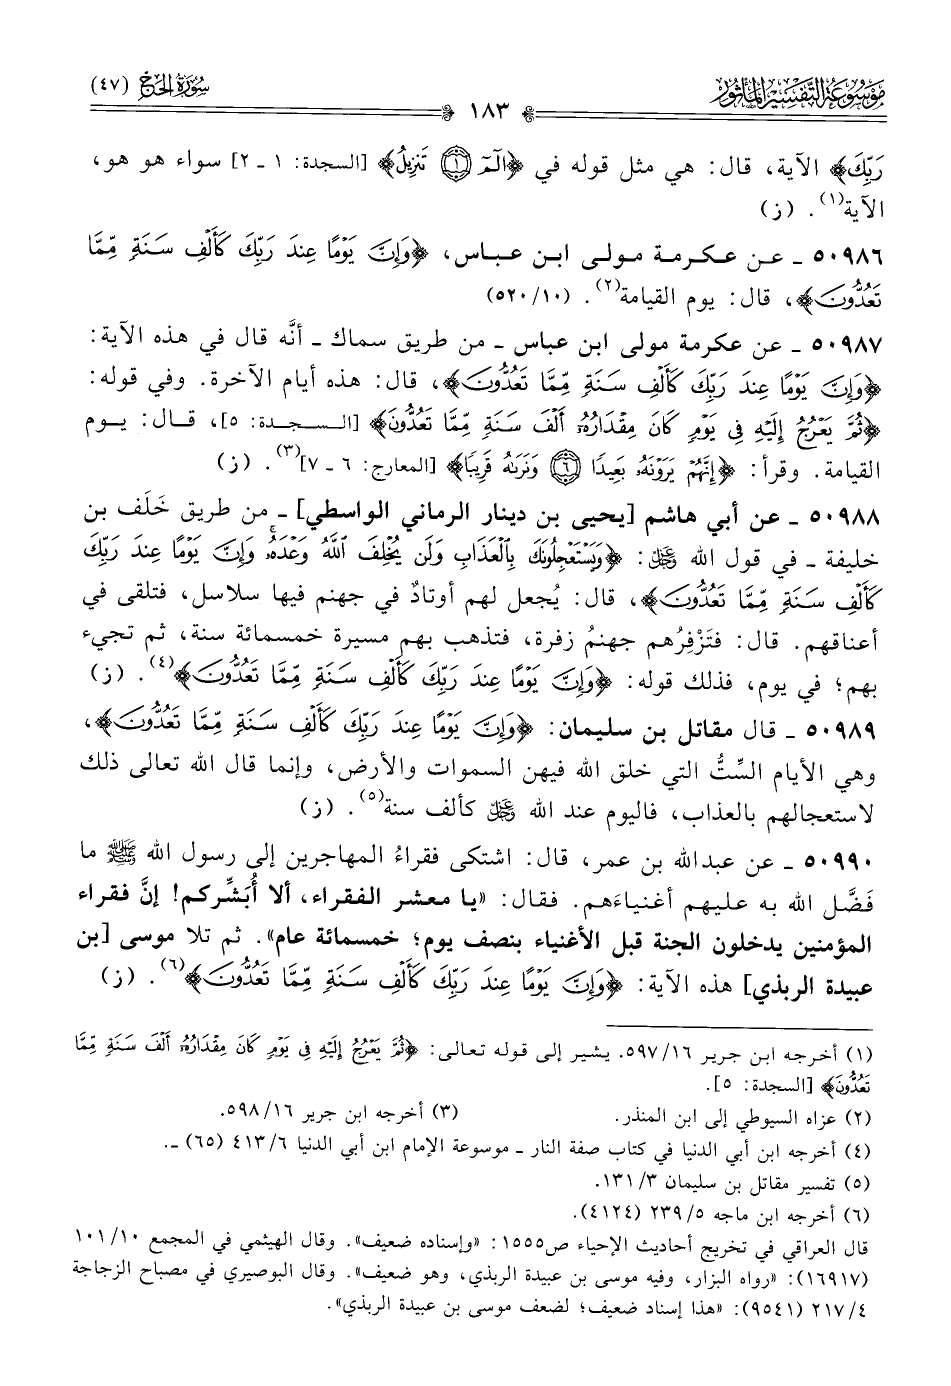 مَوْسُوعَة التَّفْسِير المَأْثُور
سُورَةُ الحَجّ (٤٧)
١٨٣
رَبِّكَ﴾ الآية، قال: هي مثل قوله في ﴿الٓمٓ ۝١ تَنزِيلُ﴾ [السجدة: ١ ـ ٢] سواء هو هو،
الآية(١). (ز)
٥٠٩٨٦ ـ عن عكرمة مولى ابن عباس، ﴿وَإِنَّ يَوْمًا عِندَ رَبِّكَ كَأَلْفِ سَنَةٍ مِّمَّا
تَعُدُّونَ﴾، قال: يوم القيامة(٢). (١٠/ ٥٢٠)
٥٠٩٨٧ ـ عن عكرمة مولى ابن عباس ـ من طريق سماك ـ أنَّه قال في هذه الآية:
﴿وَإِنَّ يَوْمًا عِندَ رَبِّكَ كَأَلْفِ سَنَةٍ مِّمَّا تَعُدُّونَ﴾، قال: هذه أيام الآخرة. وفي قوله:
﴿ثُمَّ يَعْرُجُ إِلَيْهِ فِي يَوْمٍ كَانَ مِقْدَارُهُۥٓ أَلْفَ سَنَةٍ مِّمَّا تَعُدُّونَ﴾ [السجدة: ٥]، قال: يوم
القيامة. وقرأ: ﴿إِنَّهُمْ يَرَوْنَهُۥ بَعِيدًا ۝٦ وَنَرَىٰهُ قَرِيبًا﴾ [المعارج: ٦ ـ ٧](٣). (ز)
٥٠٩٨٨ ـ عن أبي هاشم [يحيى بن دينار الرماني الواسطي] ـ من طريق خَلَف بن
خليفة ـ في قول الله ﷿: ﴿وَيَسْتَعْجِلُونَكَ بِالْعَذَابِ وَلَن يُخْلِفَ اللَّهُ وَعْدَهُۥ وَإِنَّ يَوْمًا عِندَ رَبِّكَ
كَأَلْفِ سَنَةٍ مِّمَّا تَعُدُّونَ﴾، قال: يُجعل لهم أوتادٌ في جهنم فيها سلاسل، فتلقى في
أعناقهم. قال: فتَزْفِرُهم جهنمُ زفرة، فتذهب بهم مسيرة خمسمائة سنة، ثم تجيء
بهم؛ في يوم، فذلك قوله: ﴿وَإِنَّ يَوْمًا عِندَ رَبِّكَ كَأَلْفِ سَنَةٍ مِّمَّا تَعُدُّونَ﴾(٤). (ز)
٥٠٩٨٩ ـ قال مقاتل بن سليمان: ﴿وَإِنَّ يَوْمًا عِندَ رَبِّكَ كَأَلْفِ سَنَةٍ مِّمَّا تَعُدُّونَ﴾،
وهي الأيام السِّتُّ التي خلق الله فيهن السموات والأرض، وإنما قال الله تعالى ذلك
لاستعجالهم بالعذاب، فاليوم عند الله ﷿ كألف سنة(٥). (ز)
٥٠٩٩٠ ـ عن عبدالله بن عمر، قال: اشتكى فقراءُ المهاجرين إلى رسول الله ﷺ ما
فَضَّل الله به عليهم أغنياءَهم. فقال: «يا معشر الفقراء، ألا أُبَشِّركم! إنَّ فقراء
المؤمنين يدخلون الجنة قبل الأغنياء بنصف يوم؛ خمسمائة عام». ثم تلا موسى [بن
عبيدة الربذي] هذه الآية: ﴿وَإِنَّ يَوْمًا عِندَ رَبِّكَ كَأَلْفِ سَنَةٍ مِّمَّا تَعُدُّونَ﴾(٦). (ز)
(١) أخرجه ابن جرير ١٦/ ٥٩٧. يشير إلى قوله تعالى: ﴿ثُمَّ يَعْرُجُ إِلَيْهِ فِي يَوْمٍ كَانَ مِقْدَارُهُۥٓ أَلْفَ سَنَةٍ مِّمَّا
تَعُدُّونَ﴾ [السجدة: ٥].
(٢) عزاه السيوطي إلى ابن المنذر.
(٣) أخرجه ابن جرير ١٦/ ٥٩٨.
(٤) أخرجه ابن أبي الدنيا في كتاب صفة النار ـ موسوعة الإمام ابن أبي الدنيا ٦/ ٤١٣ (٦٥) ـ.
(٥) تفسير مقاتل بن سليمان ٣/ ١٣١.
(٦) أخرجه ابن ماجه ٥/ ٢٣٩ (٤١٢٤).
قال العراقي في تخريج أحاديث الإحياء ص١٥٥٥: «وإسناده ضعيف». وقال الهيثمي في المجمع ١٠/ ١٠١
(١٦٩١٧): «رواه البزار، وفيه موسى بن عبيدة الربذي، وهو ضعيف». وقال البوصيري في مصباح الزجاجة
٤/ ٢١٧ (٩٥٤١): «هذا إسناد ضعيف؛ لضعف موسى بن عبيدة الربذي».